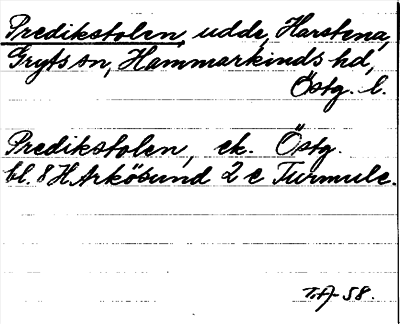 Predikstolen, udde, Harstena,
Gryts sn, Hammarkinds hd,
Östg. l.
Predikstolen, ek. Östg.
bl. 8 H Arkösund 2 c Turmulc.
T.A-58.